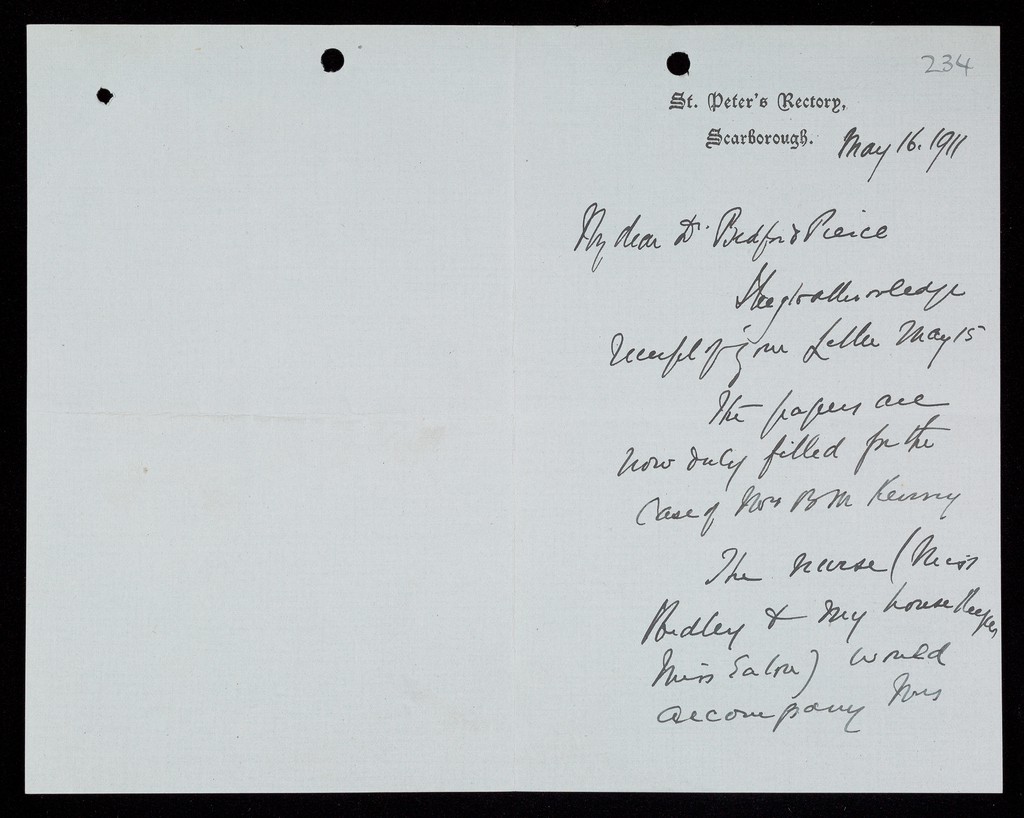 234
St. Peter's Rectory,
Scarborough.
May 16. 1911
My dear Dr. Bedford Pierce
I beg to acknowledge
receipt of your letter May 15
The papers are
now duly filled for the
case of Mrs B M
The nurse (Miss
& my housekeeper
Miss Eaton) would
accompany Mrs